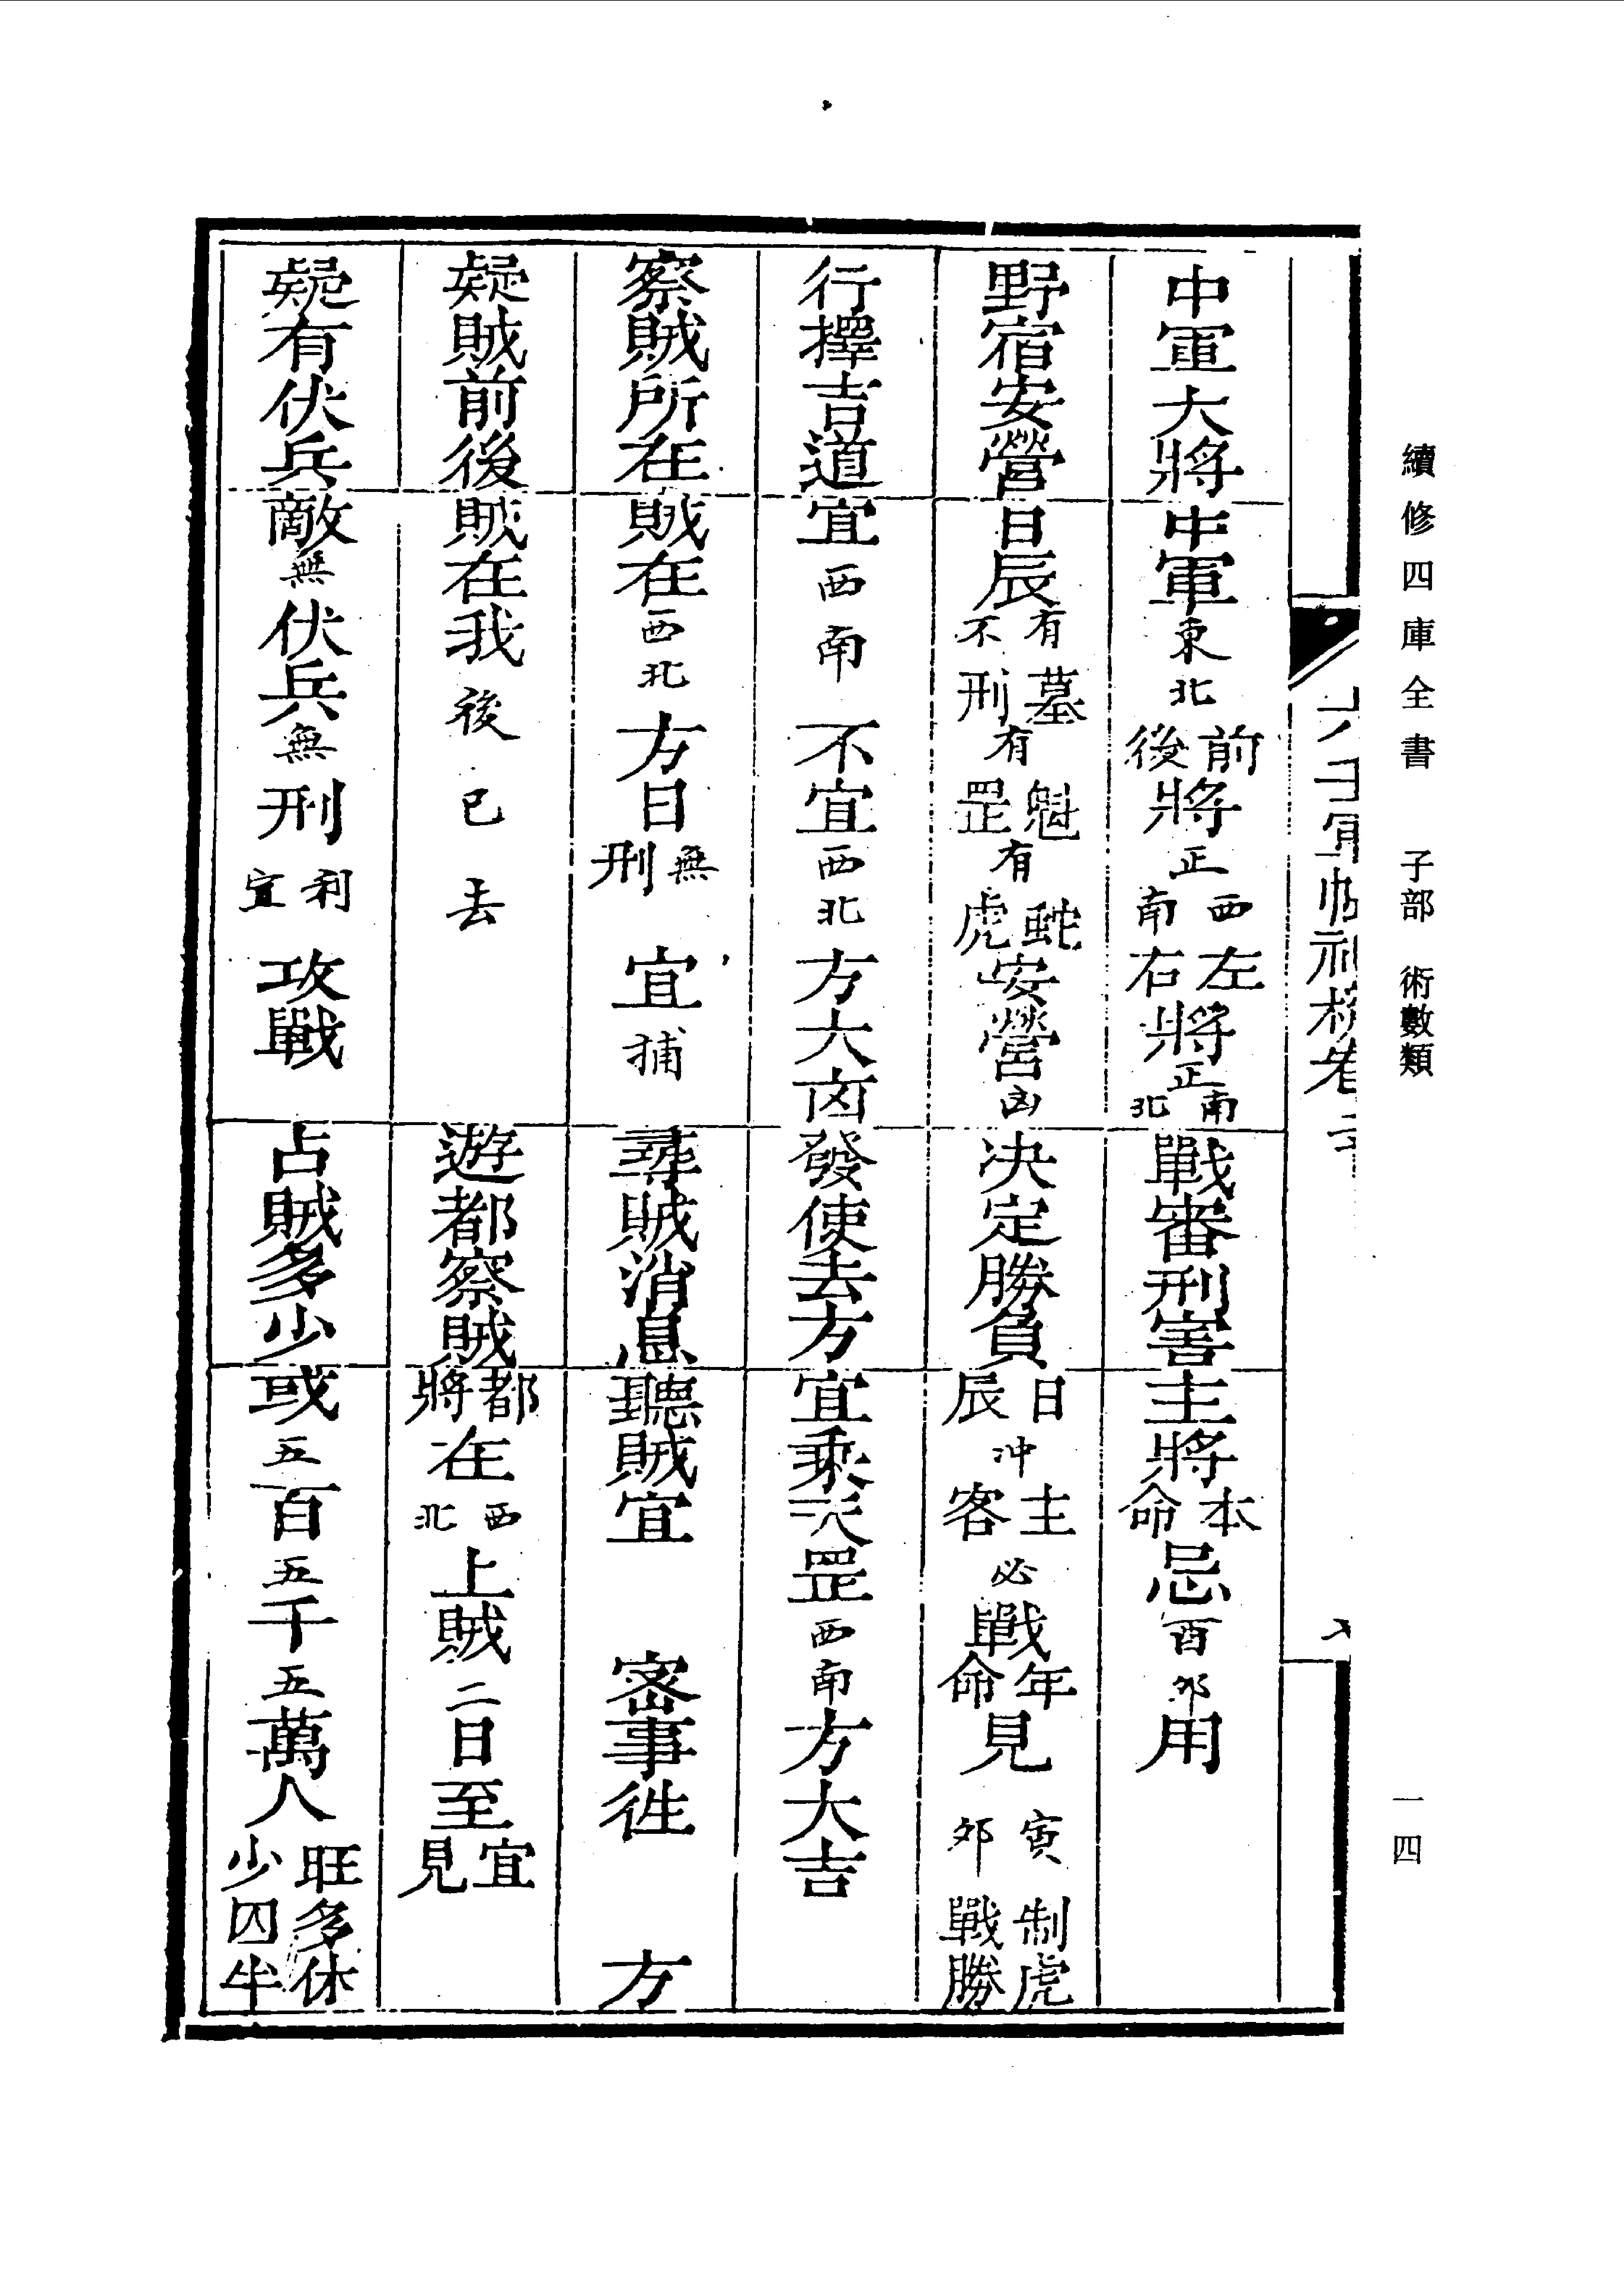 續修四庫全書 子部 術數類
一四
中軍大將 中軍東北前後將正西南左右將正南北 戰審刑害 主將本命忌酉卯用
野宿安營 日辰有不墓刑有魁罡有蛇虎安營凶 決定勝負 日辰沖主客必戰年命見寅卯制虎戰勝
行擇吉道 宜西南不宜西北方大凶 發使去方 宜乘天罡西南方大吉
察賊所在 賊在西北方日無刑宜捕 尋賊消息 聽賊宜 密事徃 方
疑賊前後 賊在我後已去 遊都察賊 都將在西北上賊二日至宜見
疑有伏兵 敵無伏兵無刑利宜攻戰 占賊多少 或五百五千五萬人旺多休少囚半